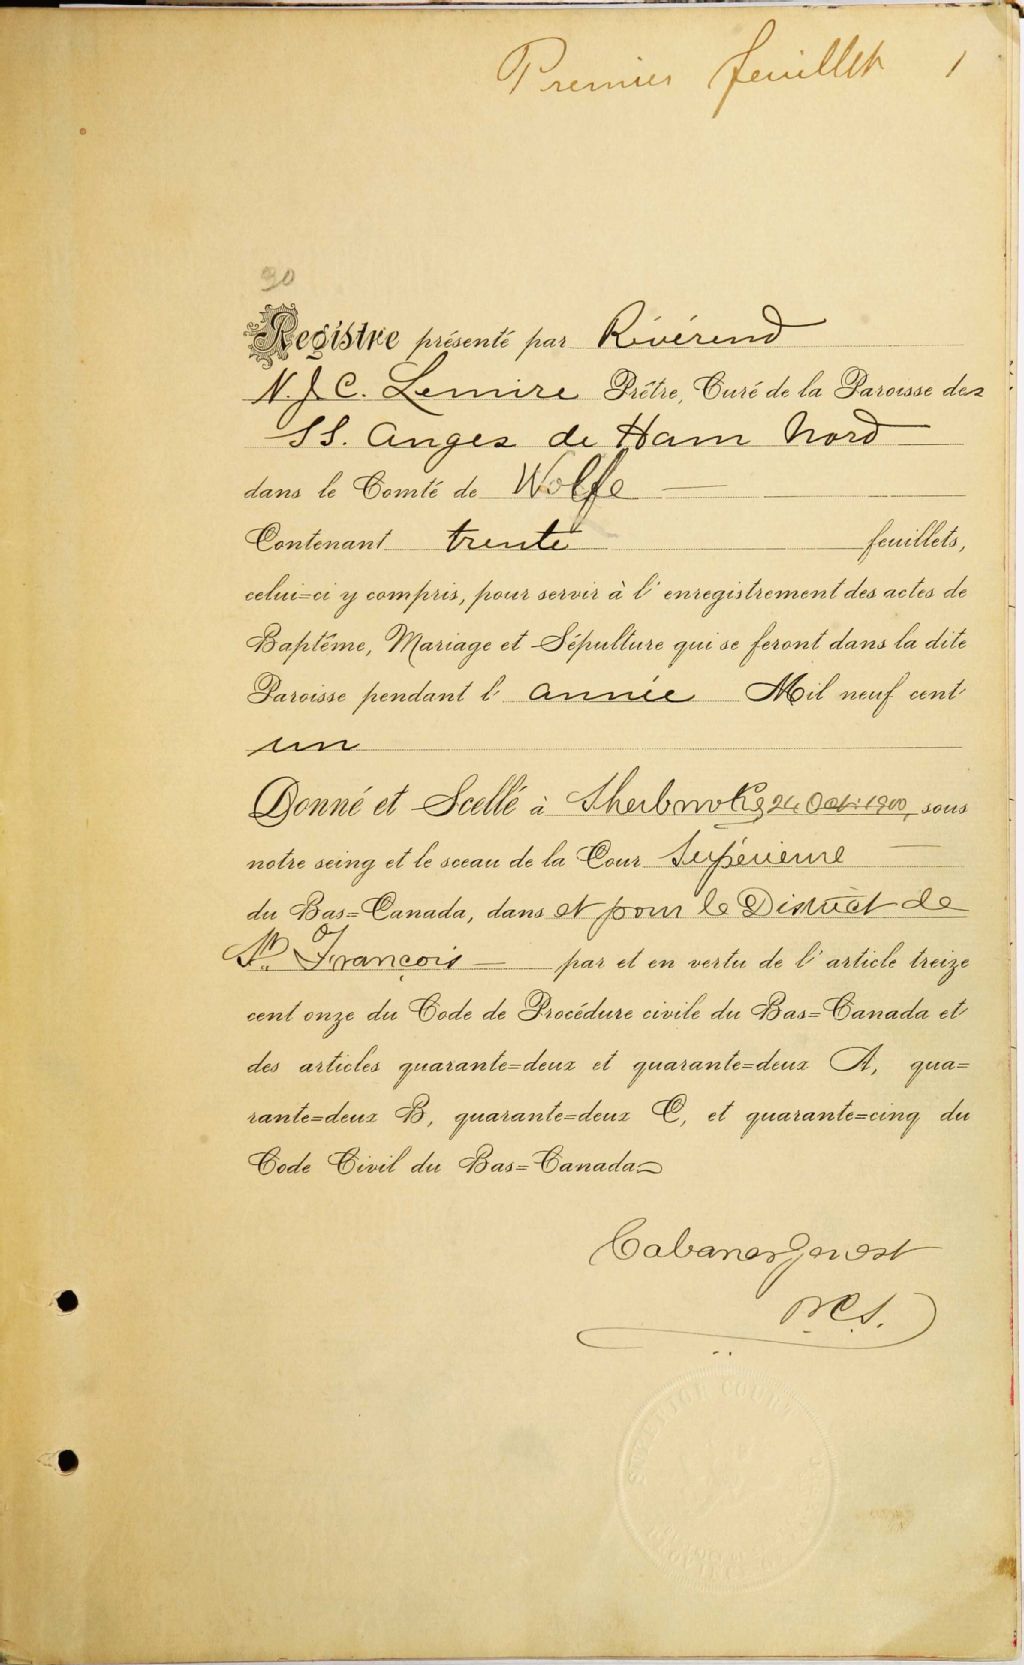 Premier feuillet 1
30
Registre présenté par Révérend
N. J. C. Lemire Prêtre, Curé de la Paroisse des
SS. Anges de Ham Nord
dans le Comté de Wolfe
Contenant trente feuillets,
celui=ci y compris, pour servir à l'enregistrement des actes de
Baptême, Mariage et Sépulture qui se feront dans la dite
Paroisse pendant l'année Mil neuf cent
un
Donné et Scellé à Sherbrooke 24 Oct. 1900, sous
notre seing et le sceau de la Cour Supérieure
du Bas=Canada, dans et pour le District de
St. François par et en vertu de l'article treize
cent onze du Code de Procédure civile du Bas=Canada et
des articles quarante=deux et quarante=deux A, qua=
rante=deux B, quarante=deux C, et quarante=cinq du
Code Civil du Bas=Canada
Cabana & Genest
P.C.S.
SUPERIOR COURT